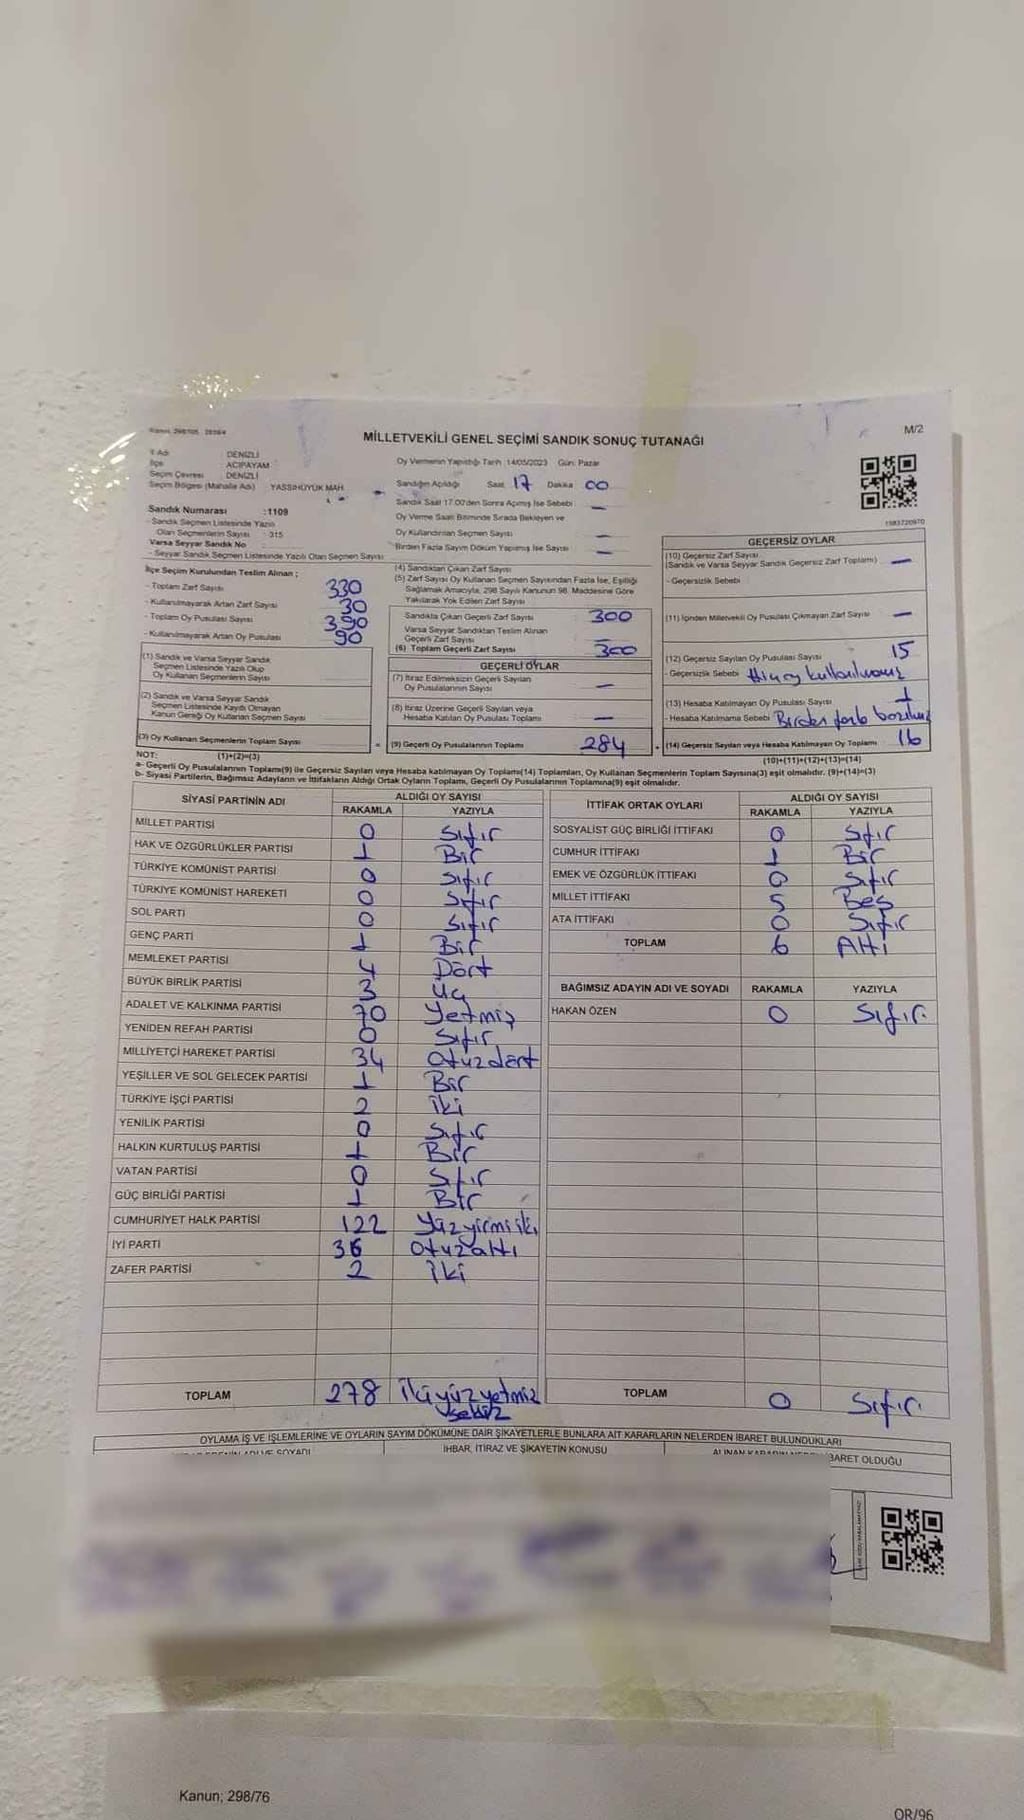 MİLLETVEKİLİ GENEL SEÇİMİ SANDIK SONUÇ TUTANAĞI
M/2
İl Adı : DENİZLİ
İlçe : ACIPAYAM
Seçim Çevresi : DENİZLİ
Seçim Bölgesi (Mahalle Adı) : YASSIHÜYÜK MAH.
Oy Vermenin Yapıldığı Tarih :14/05/2023 Gün: Pazar
Sandığın Açıldığı Saat 17 Dakika 00
Sandık Saat 17.00'den Sonra Açımış İse Sebebi —
Oy Verme Saati Bitiminde Sırada Bekleyen ve
Oy Kullandırılan Seçmen Sayısı —
Birden Fazla Sayım Döküm Yapılmış İse Sayısı —
1583720970
Sandık Numarası :1109
- Sandık Seçmen Listesinde Yazılı
Olan Seçmenlerin Sayısı : 315
Varsa Seyyar Sandık No :
- Seyyar Sandık Seçmen Listesinde Yazılı Olan Seçmen Sayısı
İlçe Seçim Kurulundan Teslim Alınan ;
- Toplam Zarf Sayısı 330
- Kullanılmayarak Artan Zarf Sayısı 30
- Toplam Oy Pusulası Sayısı 390
- Kullanılmayarak Artan Oy Pusulası 90
(1) Sandık ve Varsa Seyyar Sandık
Seçmen Listesinde Yazılı Olup
Oy Kullanan Seçmenlerin Sayısı
(2) Sandık ve Varsa Seyyar Sandık
Seçmen Listesinde Kayıtlı Olmayan
Kanun Gereği Oy Kullanan Seçmen Sayısı
(3) Oy Kullanan Seçmenlerin Toplam Sayısı
(1)+(2)=(3)
(4) Sandıktan Çıkan Zarf Sayısı
(5) Zarf Sayısı Oy Kullanan Seçmen Sayısından Fazla İse, Eşitliği
Sağlamak Amacıyla, 298 Sayılı Kanunun 98. Maddesine Göre
Yakılarak Yok Edilen Zarf Sayısı
Sandıkta Çıkan Geçerli Zarf Sayısı 300
Varsa Seyyar Sandıktan Teslim Alınan
Geçerli Zarf Sayısı —
(6) Toplam Geçerli Zarf Sayısı 300
GEÇERLİ OYLAR
(7) İtiraz Edilmeksizin Geçerli Sayılan
Oy Pusulalarının Sayısı —
(8) İtiraz Üzerine Geçerli Sayılan veya
Hesaba Katılan Oy Pusulası Toplamı —
= (9) Geçerli Oy Pusulalarının Toplamı 284
GEÇERSİZ OYLAR
(10) Geçersiz Zarf Sayısı
(Sandık ve Varsa Seyyar Sandık Geçersiz Zarf Toplamı) —
- Geçersizlik Sebebi
(11) İçinden Milletvekili Oy Pusulası Çıkmayan Zarf Sayısı —
(12) Geçersiz Sayılan Oy Pusulası Sayısı 15
- Geçersizlik Sebebi
(13) Hesaba Katılmayan Oy Pusulası Sayısı 1
- Hesaba Katılmama Sebebi Birden fazla
+ (14) Geçersiz Sayılan veya Hesaba Katılmayan Oy Toplamı 16
(10)+(11)+(12)+(13)=(14)
NOT:
a- Geçerli Oy Pusulalarının Toplamı(9) ile Geçersiz Sayılan veya Hesaba katılmayan Oy Toplamı(14) Toplamları, Oy Kullanan Seçmenlerin Toplam Sayısına(3) eşit olmalıdır. (9)+(14)=(3)
b- Siyasi Partilerin, Bağımsız Adayların ve İttifakların Aldığı Ortak Oyların Toplamı, Geçerli Oy Pusulalarının Toplamına(9) eşit olmalıdır.
SİYASİ PARTİNİN ADI ALDIĞI OY SAYISI
RAKAMLA YAZIYLA
MİLLET PARTİSİ 0 Sıfır
HAK VE ÖZGÜRLÜKLER PARTİSİ 1 Bir
TÜRKİYE KOMÜNİST PARTİSİ 0 Sıfır
TÜRKİYE KOMÜNİST HAREKETİ 0 Sıfır
SOL PARTİ 0 Sıfır
GENÇ PARTİ 1 Bir
MEMLEKET PARTİSİ 4 Dört
BÜYÜK BİRLİK PARTİSİ 3 Üç
ADALET VE KALKINMA PARTİSİ 70 Yetmiş
YENİDEN REFAH PARTİSİ 0 Sıfır
MİLLİYETÇİ HAREKET PARTİSİ 34 Otuzdört
YEŞİLLER VE SOL GELECEK PARTİSİ 1 Bir
TÜRKİYE İŞÇİ PARTİSİ 2 İki
YENİLİK PARTİSİ 0 Sıfır
HALKIN KURTULUŞ PARTİSİ 1 Bir
VATAN PARTİSİ 0 Sıfır
GÜÇ BİRLİĞİ PARTİSİ 1 Bir
CUMHURİYET HALK PARTİSİ 122 Yüzyirmiiki
İYİ PARTİ 36 Otuzaltı
ZAFER PARTİSİ 2 İki
TOPLAM 278 İkiyüzyetmiş
sekiz
İTTİFAK ORTAK OYLARI ALDIĞI OY SAYISI
RAKAMLA YAZIYLA
SOSYALİST GÜÇ BİRLİĞİ İTTİFAKI 0 Sıfır
CUMHUR İTTİFAKI 1 Bir
EMEK VE ÖZGÜRLÜK İTTİFAKI 0 Sıfır
MİLLET İTTİFAKI 5 Beş
ATA İTTİFAKI 0 Sıfır
TOPLAM 6 Altı
BAĞIMSIZ ADAYIN ADI VE SOYADI RAKAMLA YAZIYLA
HAKAN ÖZEN 0 Sıfır
TOPLAM 0 Sıfır
OYLAMA İŞ VE İŞLEMLERİNE VE OYLARIN SAYIM DÖKÜMÜNE DAİR ŞİKAYETLERLE BUNLARA AİT KARARLARIN NELERDEN İBARET BULUNDUKLARI
İHBAR, İTİRAZ VE ŞİKAYETİN KONUSU
İBARET OLDUĞU
Kanun; 298/76
OR/96